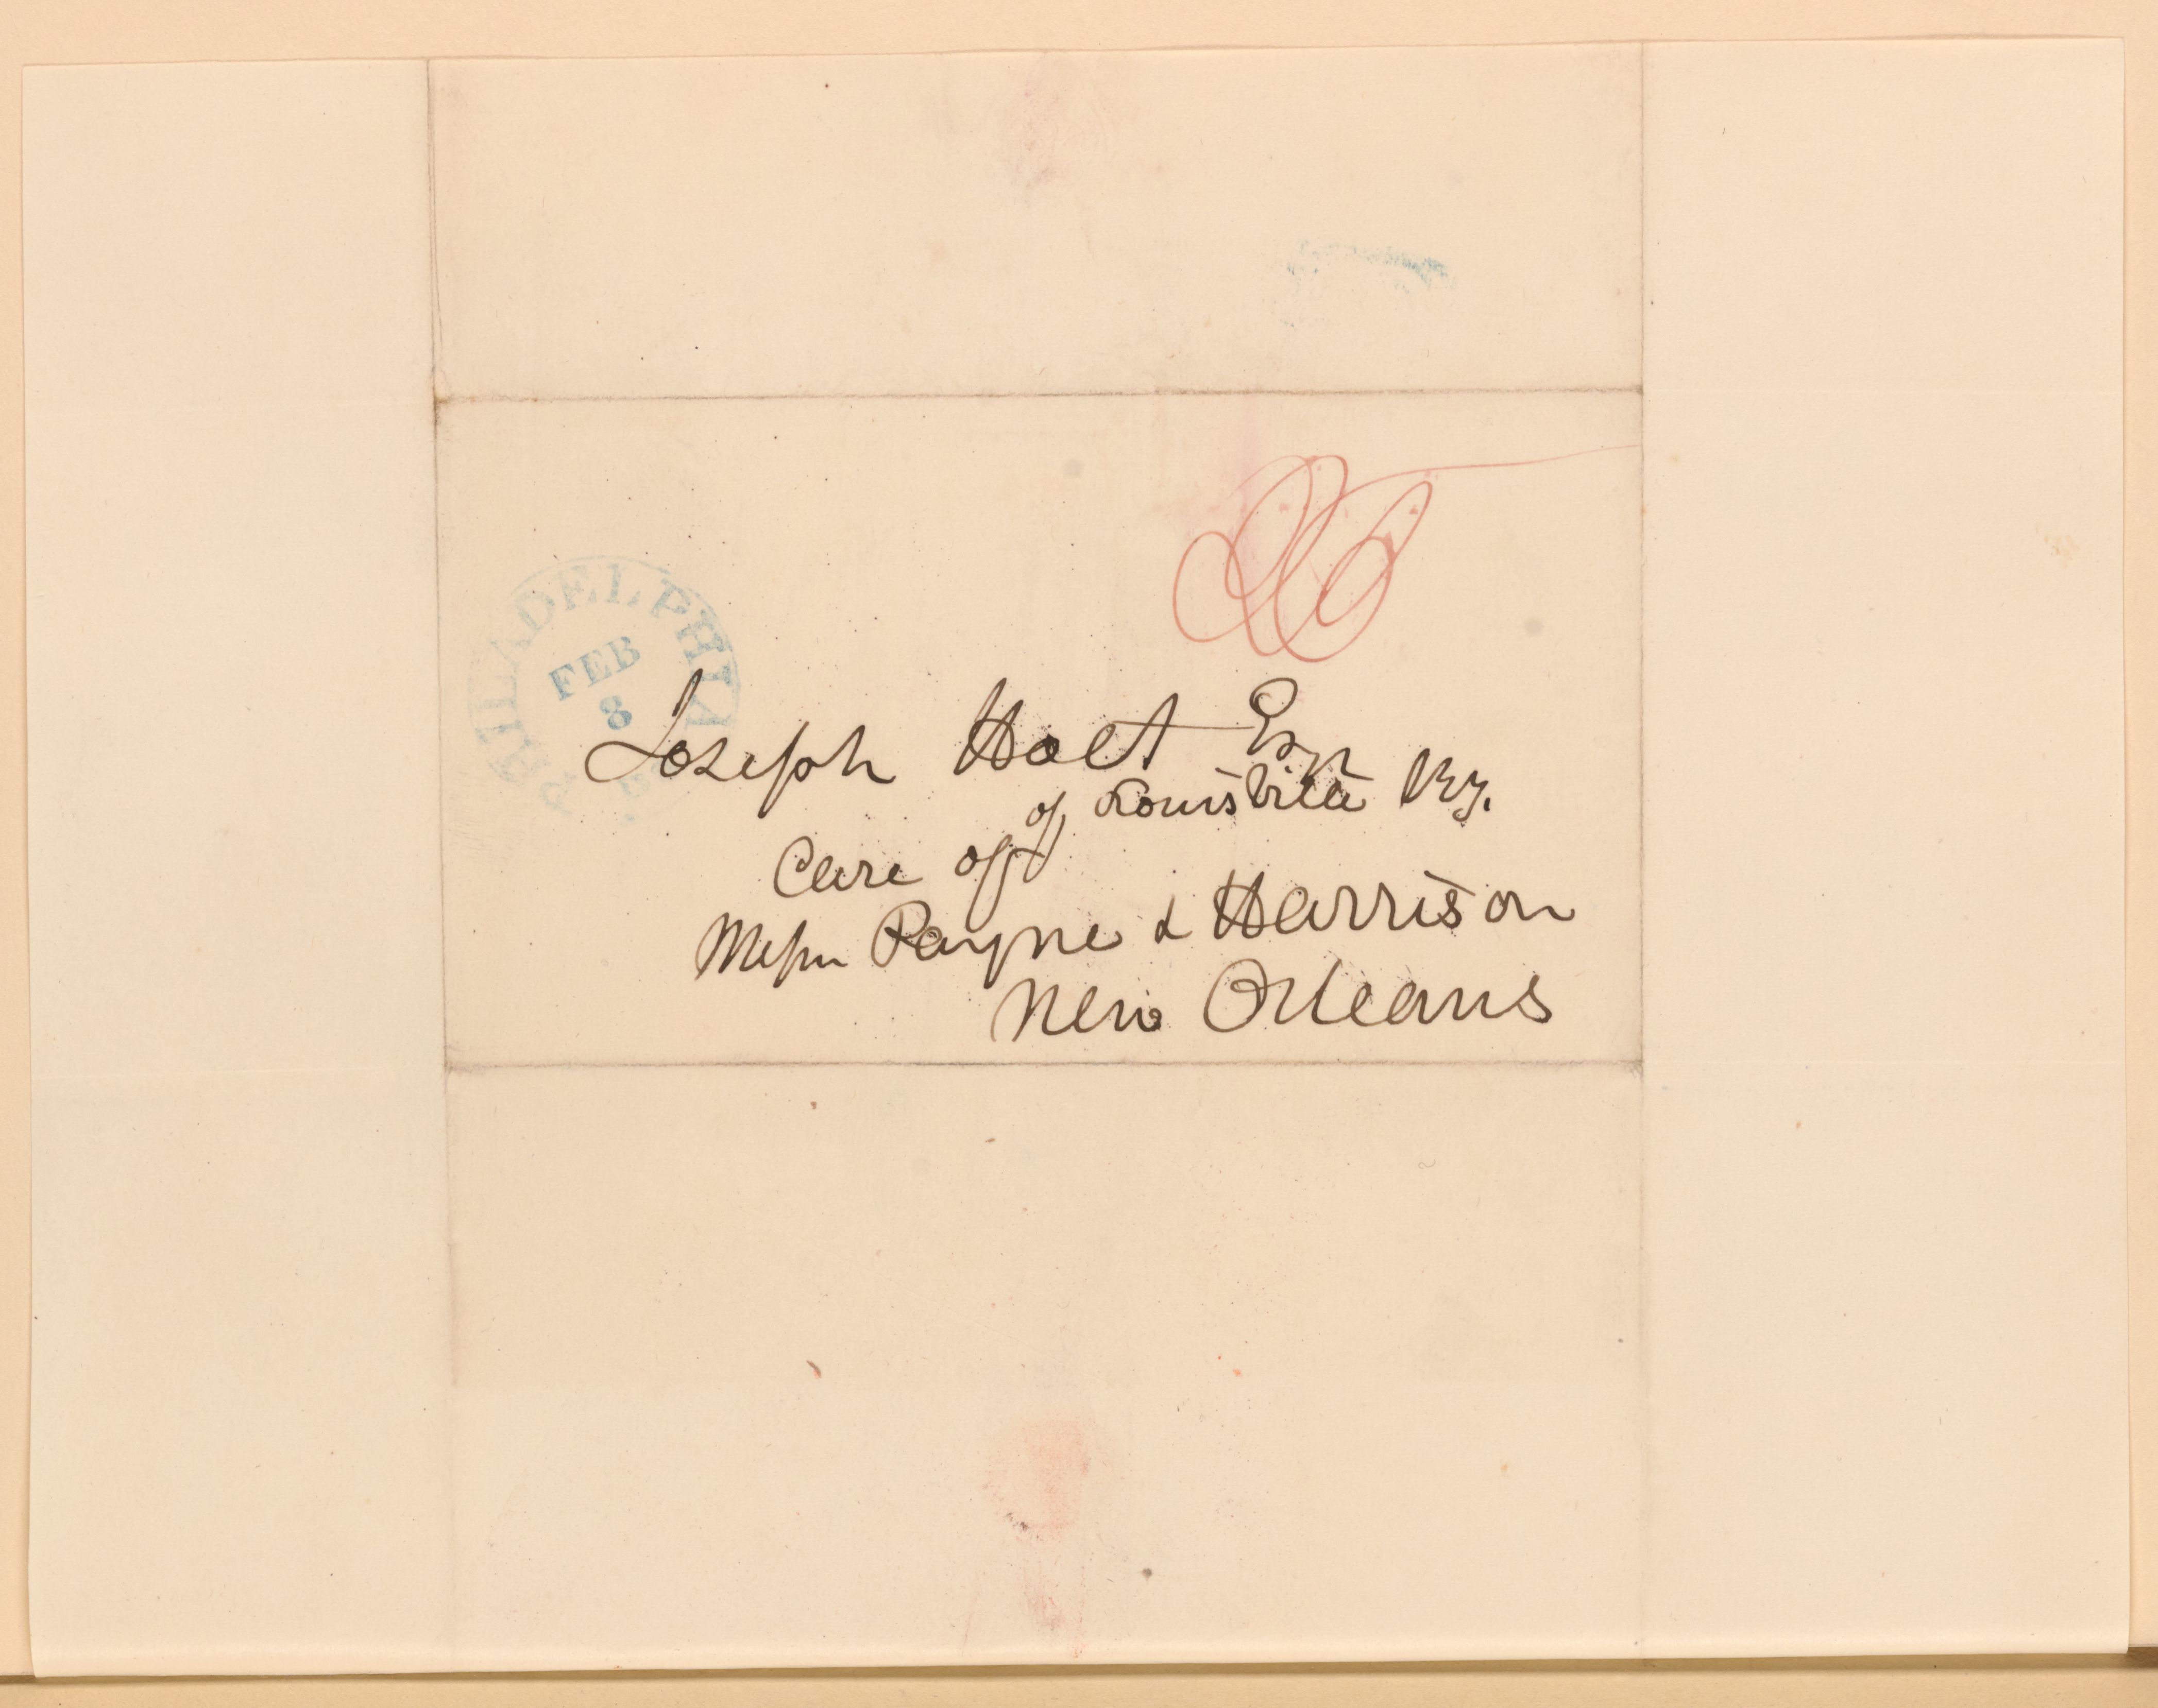 PHILADELPHIA
FEB
8
Pa.
Joseph Holt Esqr
of Louisville Ky.
Care of
Messrs Payne & Harrison
New Orleans